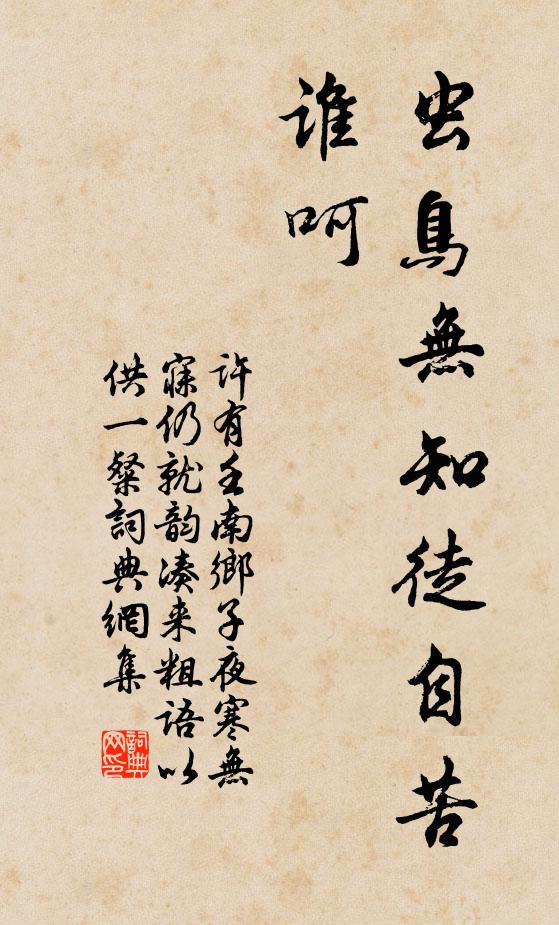 虫鳥無知徒自苦
誰呵
許有壬南鄉子夜寒無
寐仍就韵凑来粗語以
供一粲詞典網集
詞典
网印